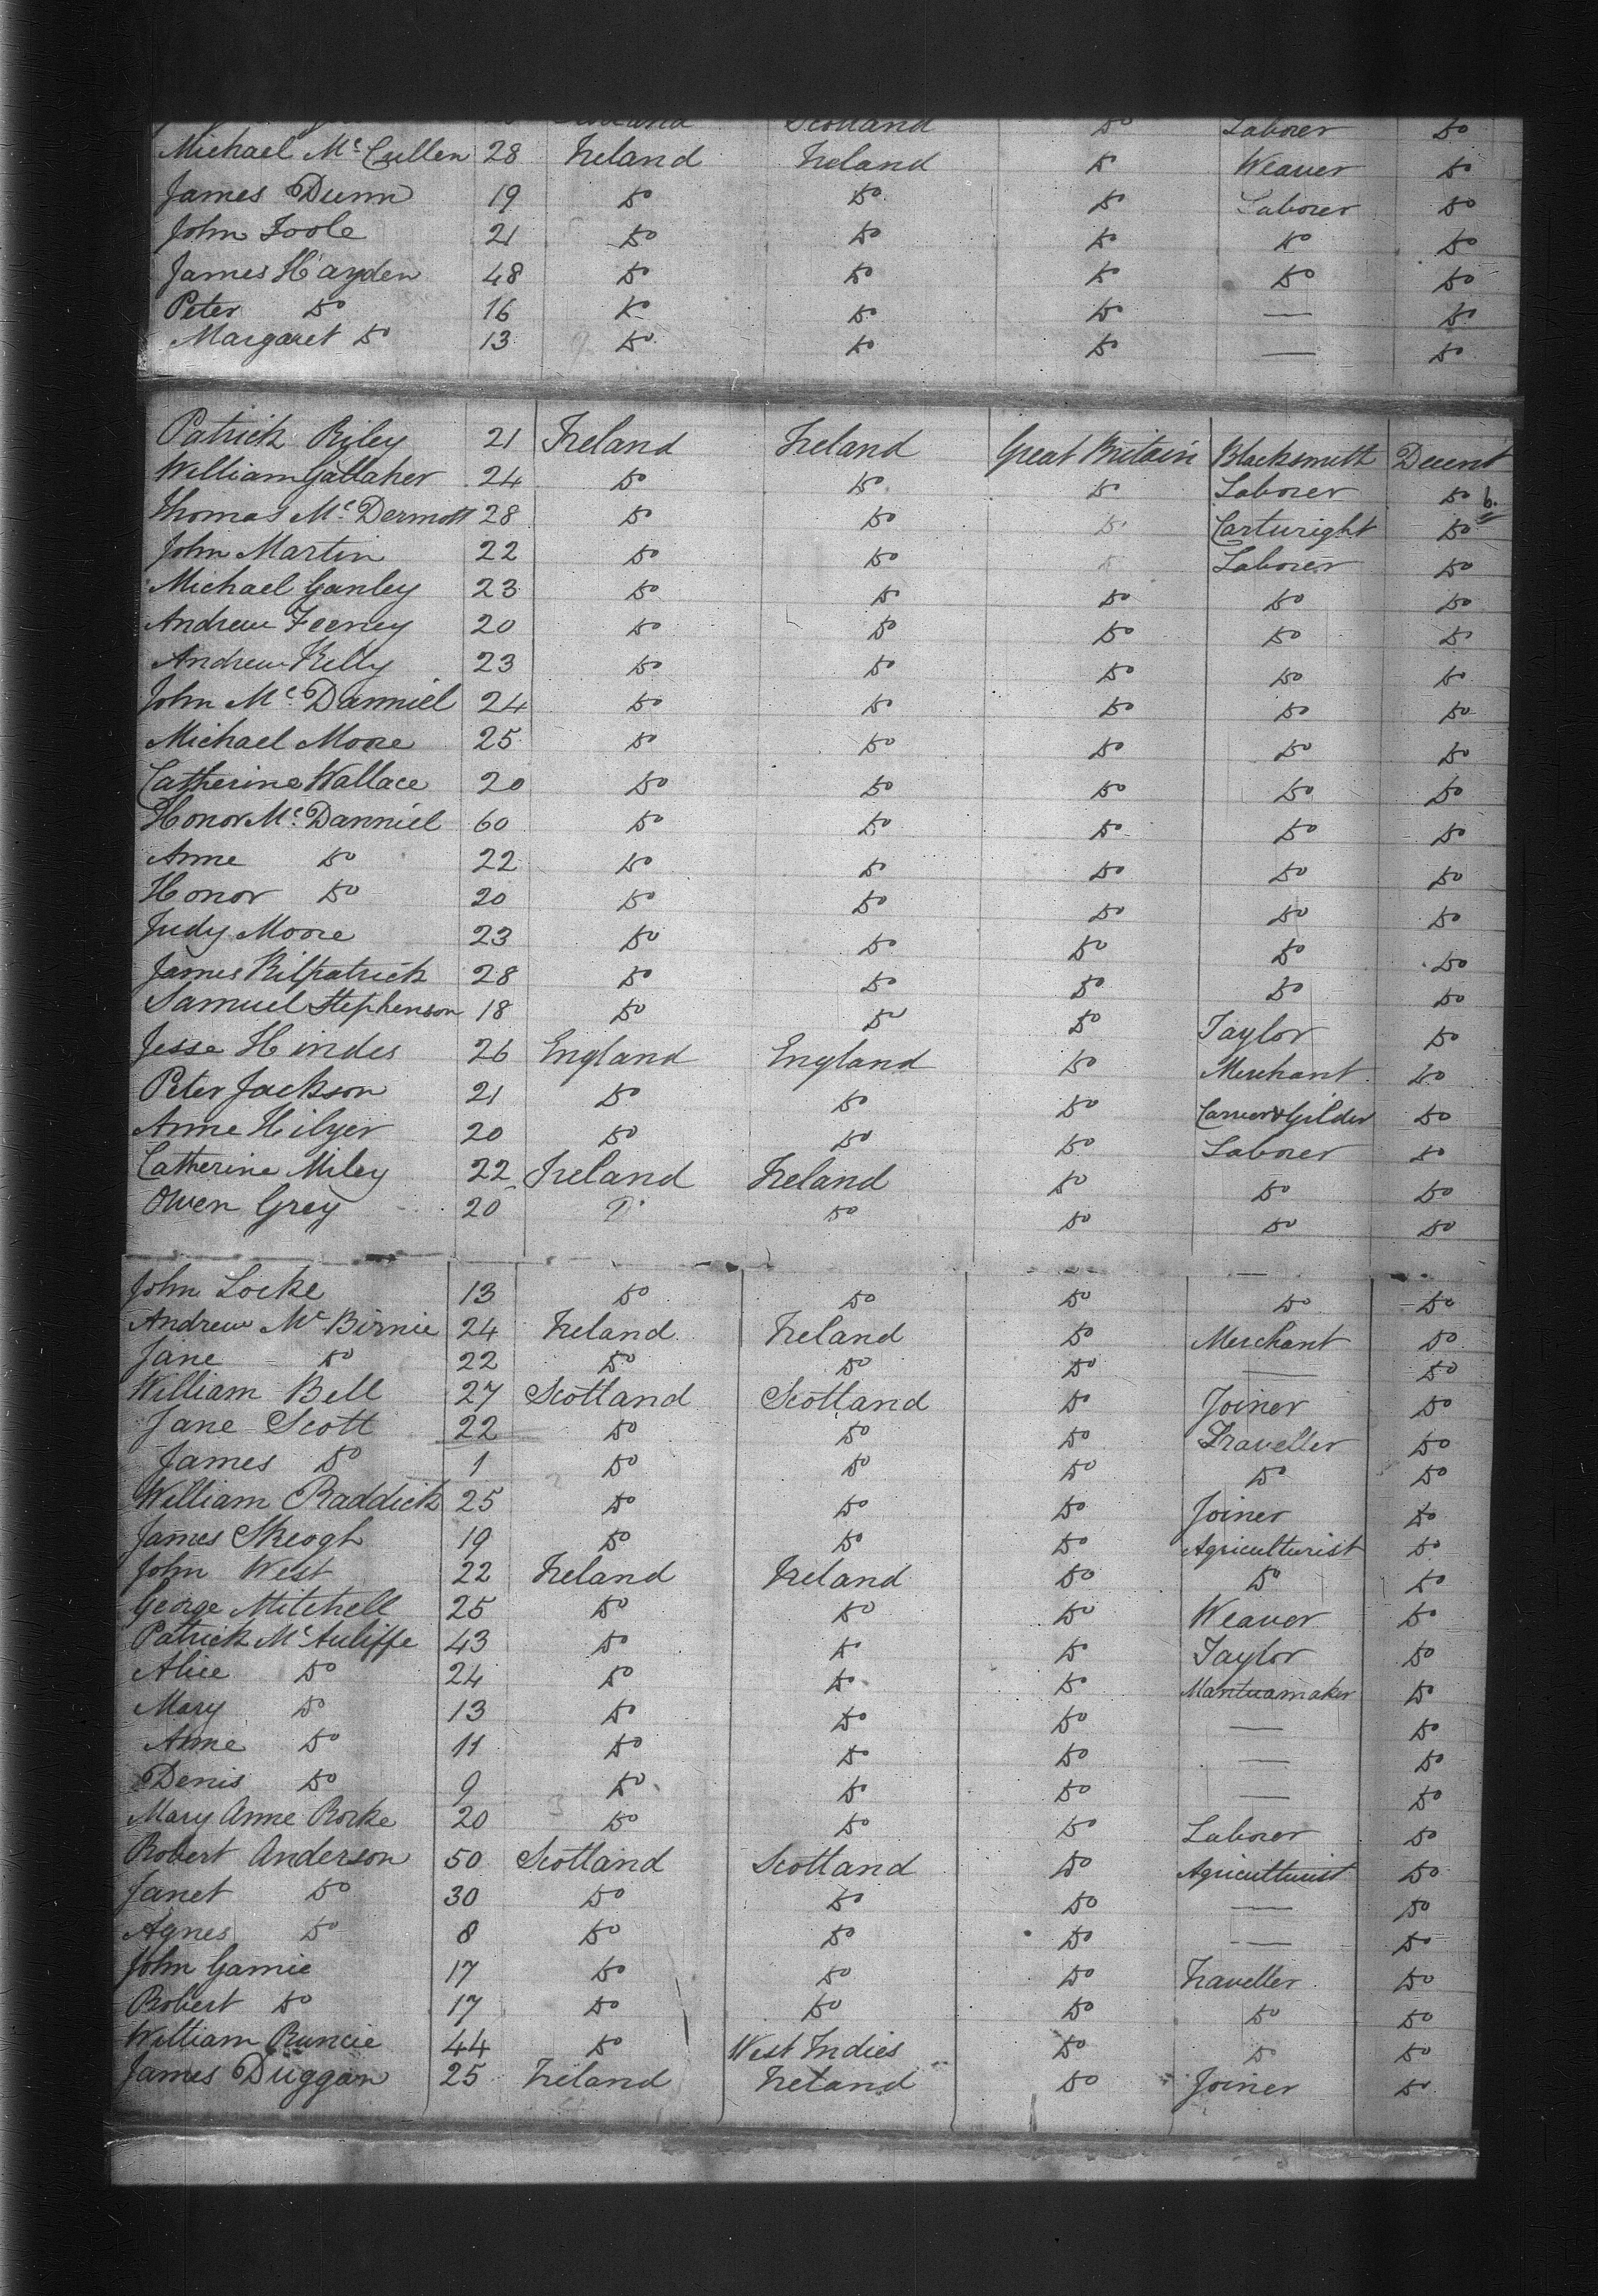 Scotland Do Laborer Do
Michael McCullen 28 Ireland Ireland Do Weaver Do
James Dunn 19 Do Do Do Laborer Do
John Toole 21 Do Do Do Do Do
James Hayden 48 Do Do Do Do Do
Peter Do 16 Do Do Do — Do
Margaret Do 13 Do Do Do — Do
Patrick Riley 21 Ireland Ireland Great Britain Blacksmith Decent
William Gallaher 24 Do Do Do Laborer Do
Thomas McDermott 28 Do Do Do Cartwright Do
John Martin 22 Do Do Do Laborer Do
Michael Ganley 23 Do Do Do Do Do
Andrew Feeney 20 Do Do Do Do Do
Andrew Kelly 23 Do Do Do Do Do
John McDanniel 24 Do Do Do Do Do
Michael Moore 25 Do Do Do Do Do
Catherine Wallace 20 Do Do Do Do Do
Honor McDanniel 60 Do Do Do Do Do
Anne Do 22 Do Do Do Do Do
Honor Do 20 Do Do Do Do Do
Judy Moore 23 Do Do Do Do Do
James Kilpatrick 28 Do Do Do Do Do
Samuel Stephenson 18 Do Do Do Taylor Do
Jesse Hindes 26 England England Do Merchant Do
Peter Jackson 21 Do Do Do Carver & Gilder Do
Anne Hilyer 20 Do Do Do Laborer Do
Catherine Miley 22 Ireland Ireland Do Do Do
Owen Grey 20 Do Do Do Do Do
John Locke 13 Do Do Do Do Do
Andrew McBirnie 24 Ireland Ireland Do Merchant Do
Jane Do 22 Do Do Do — Do
William Bell 27 Scotland Scotland Do Joiner Do
Jane Scott 22 Do Do Do Traveller Do
James Do 1 Do Do Do Do Do
William Raddick 25 Do Do Do Joiner Do
James Skeogh 19 Do Do Do Agriculturist Do
John West 22 Ireland Ireland Do Do Do
George Mitchell 25 Do Do Do Weaver Do
Patrick McAuliffe 43 Do Do Do Taylor Do
Alice Do 24 Do Do Do Mantuamaker Do
Mary Do 13 Do Do Do — Do
Anne Do 11 Do Do Do — Do
Denis Do 9 Do Do Do — Do
Mary Anne Rorke 20 Do Do Do Laborer Do
Robert Anderson 50 Scotland Scotland Do Agriculturist Do
Janet Do 30 Do Do Do — Do
Agnes Do 8 Do Do Do — Do
John Gamie 17 Do Do Do Traveller Do
Robert Do 17 Do Do Do Do Do
William Runcie 44 Do West Indies Do Do Do
James Duggan 25 Ireland Ireland Do Joiner Do